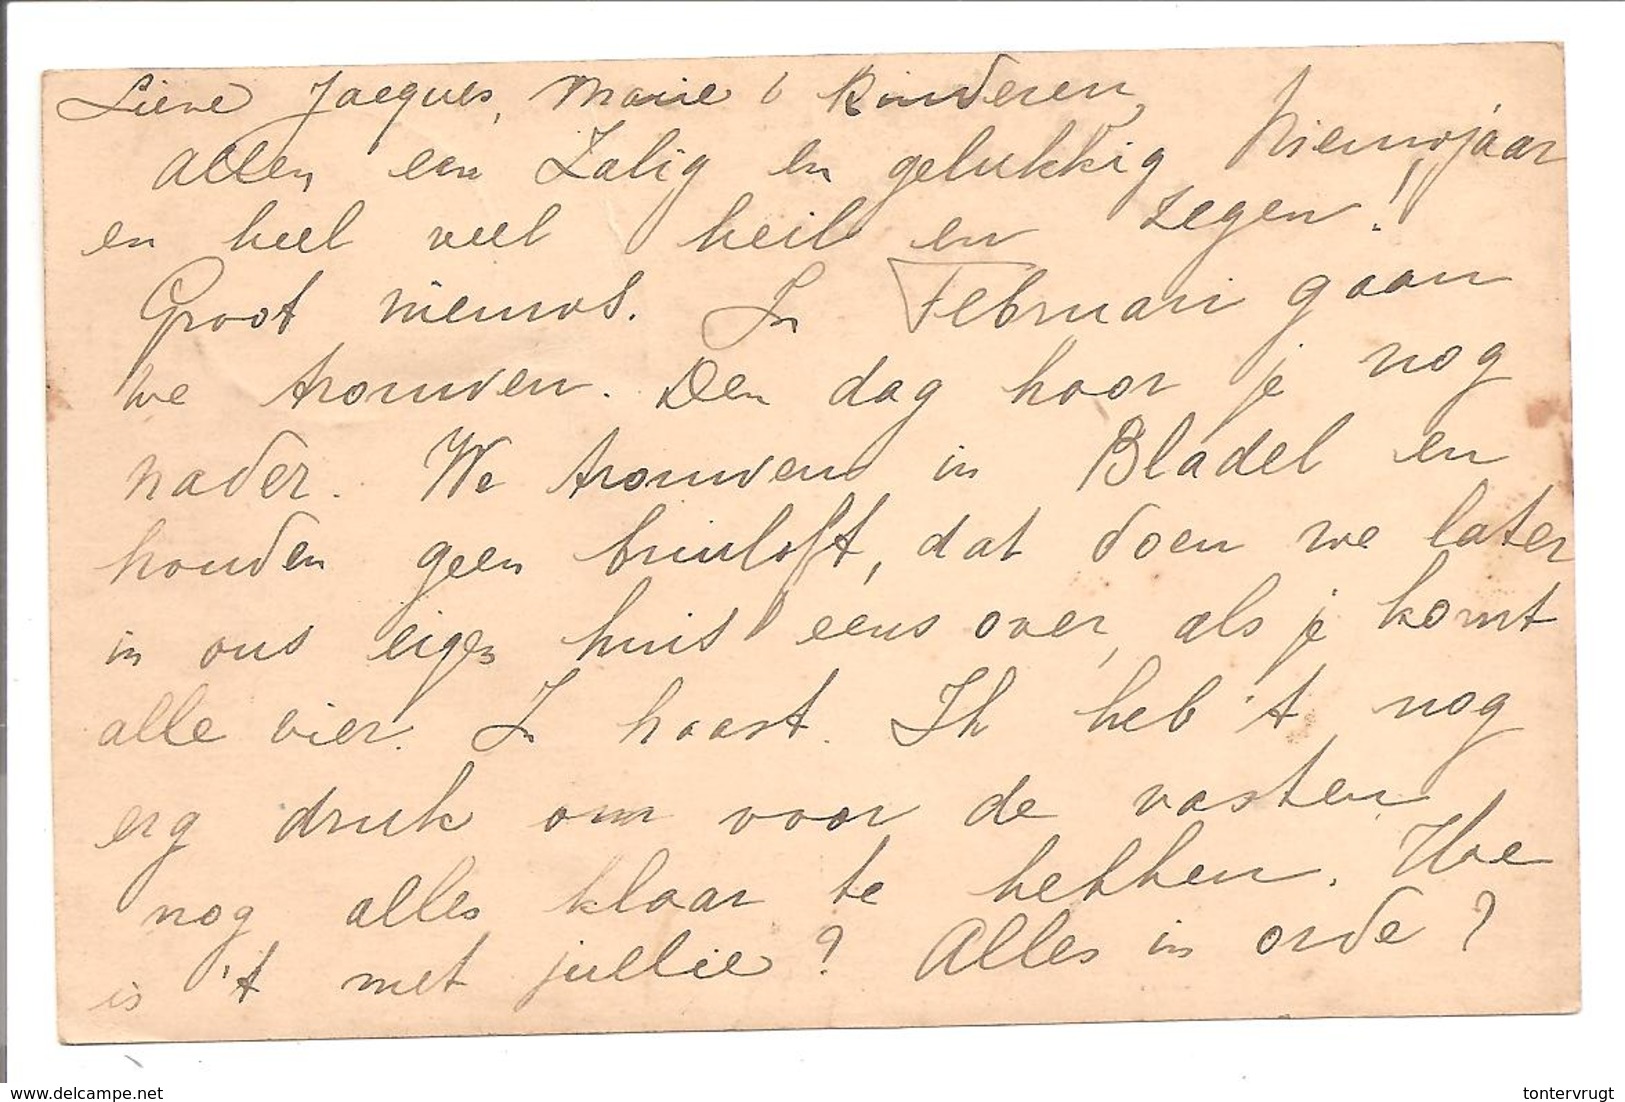 Lieve Jacques, Marie & Kinderen,
Allen een Zalig en gelukkig Nieuwjaar
en heel veel heil en zegen!
Groot nieuws. In Februari gaan
we trouwen. Den dag hoor je nog
nader. We trouwen in Bladel en
houden geen bruiloft, dat doen we later
in ons eigen huis eens over, als je komt
alle vier. In haast. Ik heb 't nog
erg druk om voor de vasten
nog alles klaar te hebben. Hoe
is 't met jullie? Alles in orde?
www.delcampe.net
tontervrugt